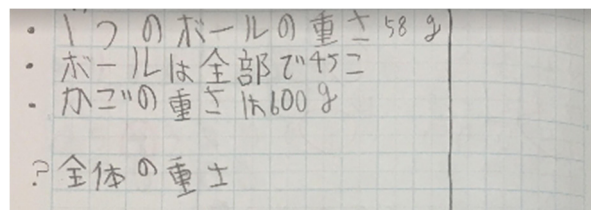 ・1つのボールの重さ58g
・ボールは全部で45こ
・かごの重さは600g
?全体の重さ